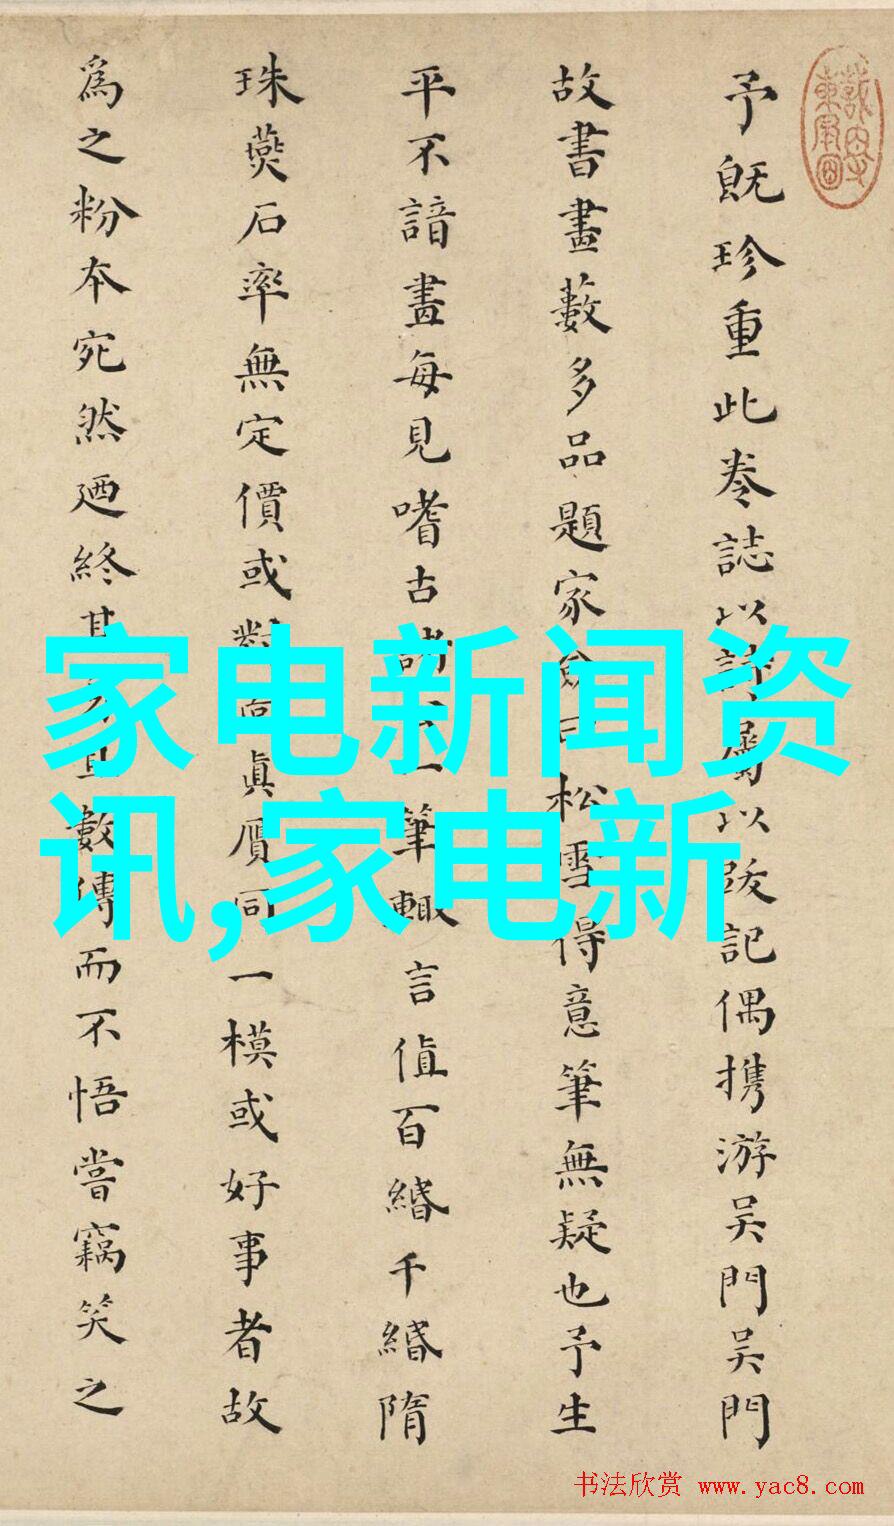 予既珍重此卷誌以詩屬以跋記偶携游吳門吳門
故書畫藪多品題家僉曰松雪得意筆無疑也予生
平不諳畫每見嗜古諸一筆輙言值百緡千緡隋
珠燕石率無定價或對眞贗同一模或好事者故
爲之粉本宛然廼終其且數傳而不悟嘗竊笑之
家电新闻资
讯,家电新
书法欣赏 www.yac8.com